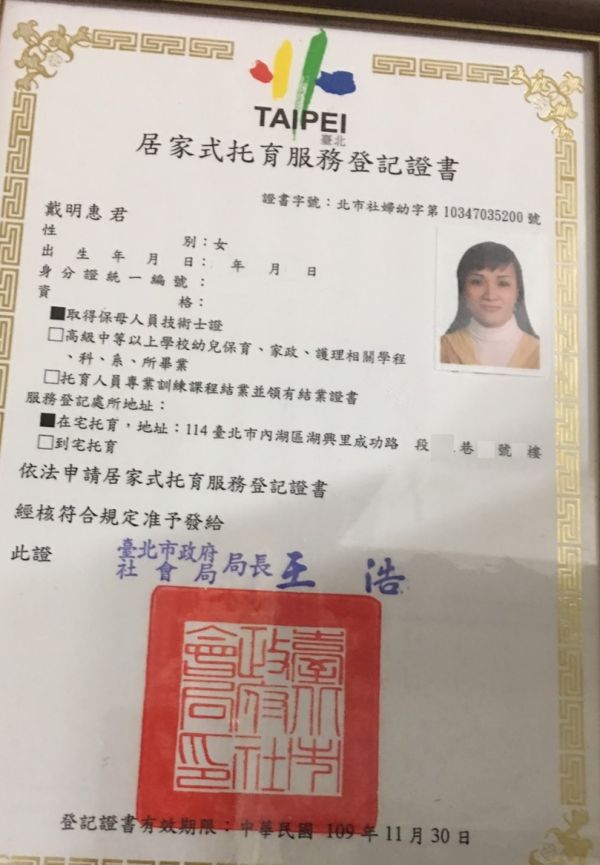 TAIPEI
臺北
居家式托育服務登記證書
證書字號：北市社婦幼字第10347035200號
戴明惠 君
性別：女
出生年月日： 年 月 日
身分證統一編號：
資格：
■取得保母人員技術士證
□高級中等以上學校幼兒保育、家政、護理相關學程
、科、系、所畢業
□托育人員專業訓練課程結業並領有結業證書
服務登記處所地址：
■在宅托育，地址：114臺北市內湖區湖興里成功路 段 巷 號 樓
□到宅托育
依法申請居家式托育服務登記證書
經核符合規定准予發給
此證
臺北市政府
社會局局長王 浩
臺北市
政府社
會局印
登記證書有效期限：中華民國 109年11月30日